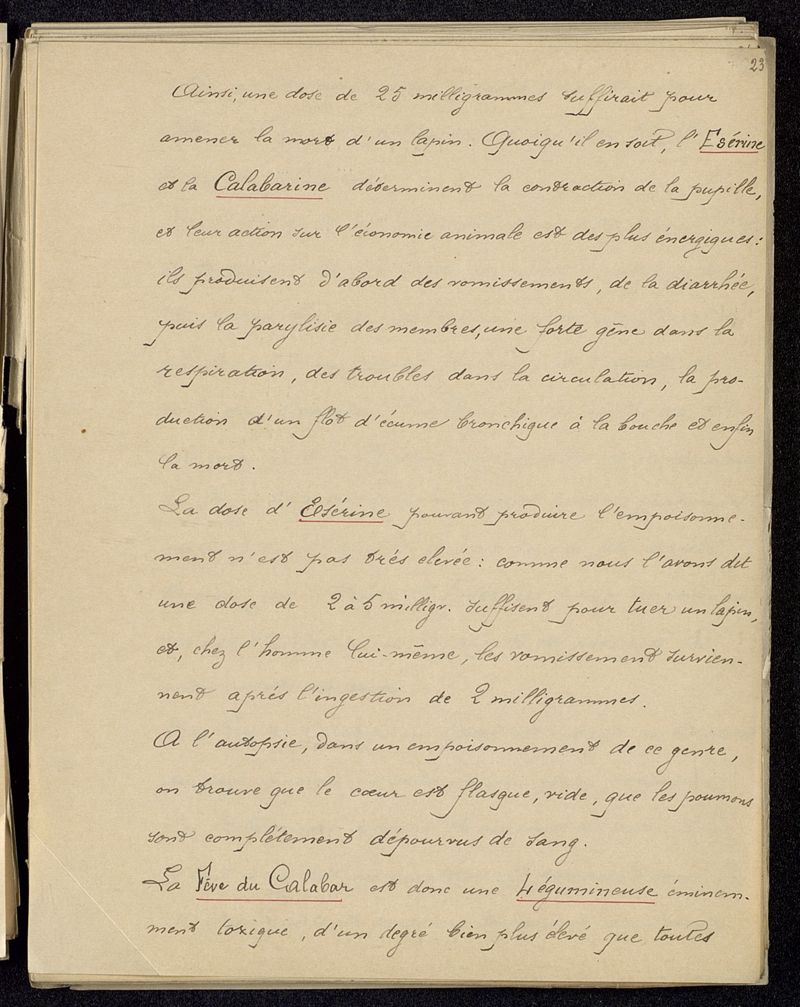 23
Ainsi, une dose de 25 milligrammes suffirait pour
amener la mort d'un lapin. Quoiqu'il en soit, l'Esérine
et la Calabarine déterminent la contraction de la pupille,
et leur action sur l'économie animale est des plus énergiques :
ils produisent d'abord des vomissements, de la diarrhée,
puis la parylisie des membres, une forte gêne dans la
respiration, des troubles dans la circulation, la pro-
duction d'un flot d'écume bronchique à la bouche et enfin
la mort.
La dose d'Esérine pouvant produire l'empoisonne-
ment n'est pas trés elevée : comme nous l'avons dit
une dose de 2 à 5 milligr. suffisent pour tuer un lapin,
et, chez l'homme lui-même, les vomissement survien-
nent aprés l'ingestion de 2 milligrammes.
A l'autopsie, dans un empoisonnement de ce genre,
on trouve que le cœur est flasque, vide, que les poumons
sont complétement dépourvus de sang.
La Fêve du Calabar est donc une Légumineuse éminem-
ment toxique, d'un degré bien plus élevé que toutes